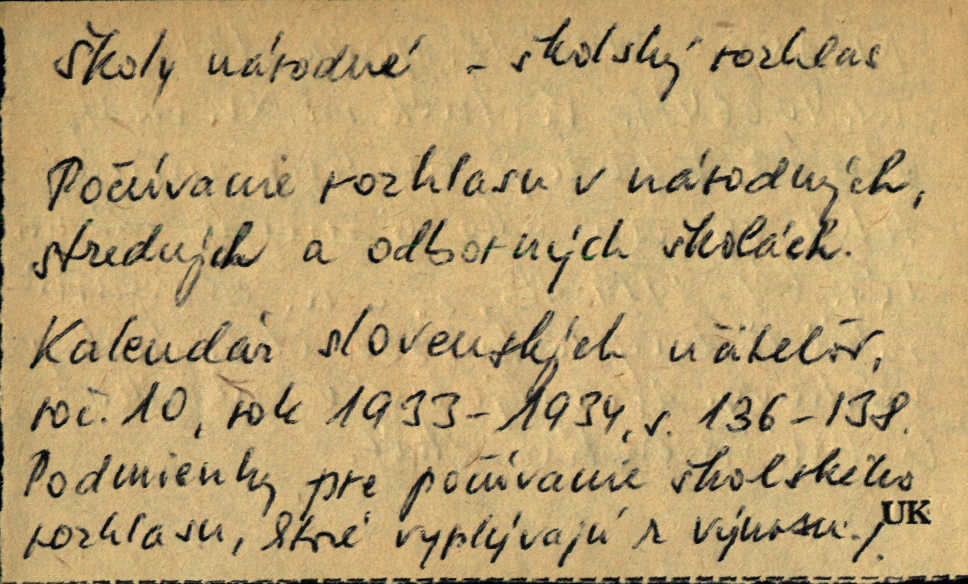 Školy národné - školský rozhlas
Počúvanie rozhlasu v národných,
stredných a odborných školách.
Kalendár slovenských učiteľov,
roč. 10, rok 1933-1934, s. 136-138.
Podmienky pre počúvanie školského
rozhlasu, ktoré vyplývajú z výnosu./
UK